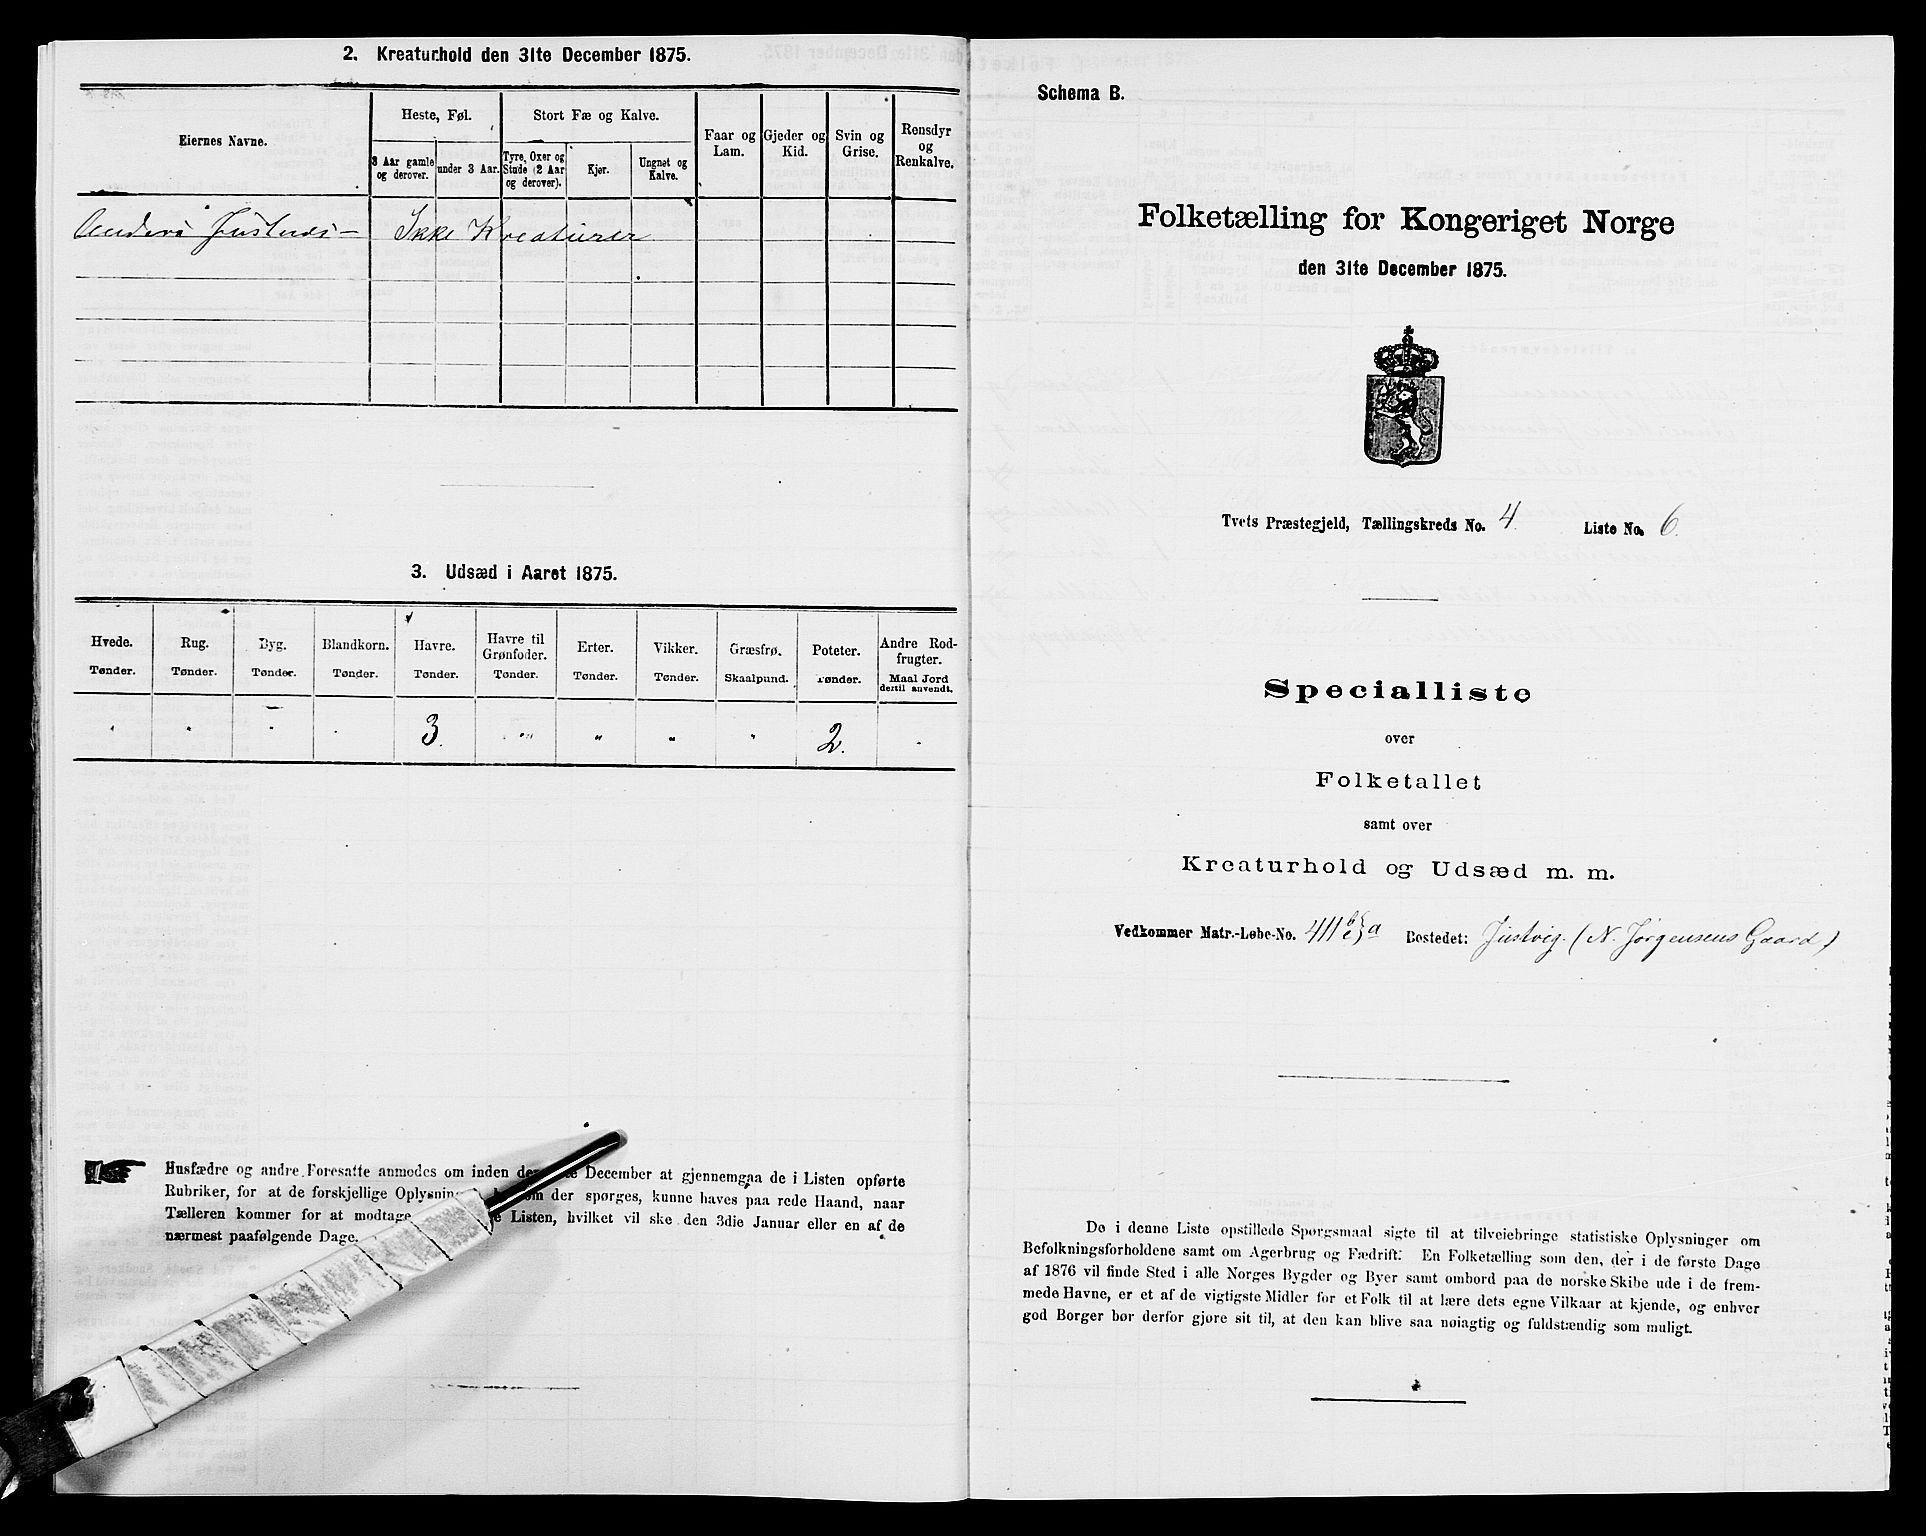 2. Kreaturhold den 31te December 1875.
Eiernes Navne.
Heste, Føl.
3 Aar gamle og derover.
under 3 Aar.
Stort Fæ og Kalve.
Tyre, Oxer og Stude (2 Aar og derover).
Kjør.
Ungnøt og Kalve.
Faar og Lam.
Gjeder og Kid.
Svin og Grise.
Rensdyr og Renkalve.
Anders Justnes – Ikke Kreaturer
3. Udsæd i Aaret 1875.
Hvede. Rug. Byg. Blandkorn. Havre. Havre til Grønfoder. Erter. Vikker. Græsfrø. Poteter. Andre Rodfrugter.
Tønder. Tønder. Tønder. Tønder. Tønder. Tønder. Tønder. Tønder. Skaalpund. Tønder. Maal Jord dertil anvendt.
" " " " 3. " " " " 2. "
Husfædre og andre Foresatte anmodes om inden de December at gjennemgaa de i Listen opførte
Rubriker, for at de forskjellige Oplysnin om der spørges, kunne haves paa rede Haand, naar
Tælleren kommer for at modtage Listen, hvilket vil ske den 3die Januar eller en af de
nærmest paafølgende Dage.
Schema B.
Folketælling for Kongeriget Norge
den 31te December 1875.
Tvets Præstegjeld, Tællingskreds No. 4. Liste No. 6.
Specialliste
over
Folketallet
samt over
Kreaturhold og Udsæd m. m.
Vedkommer Matr.-Løbe-No. 411 a Bostedet: Justvig. (N. Jørgensens Gaard)
De i denne Liste opstillede Spørgsmaal sigte til at tilveiebringe statistiske Oplysninger om
Befolkningsforholdene samt om Agerbrug og Fædrift. En Folketælling som den, der i de første Dage
af 1876 vil finde Sted i alle Norges Bygder og Byer samt ombord paa de norske Skibe ude i de frem-
mede Havne, er et af de vigtigste Midler for et Folk til at lære dets egne Vilkaar at kjende, og enhver
god Borger bør derfor gjøre sit til, at den kan blive saa nøiagtig og fuldstændig som muligt.